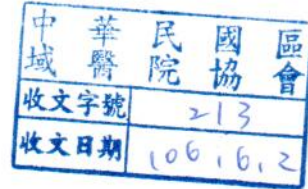 中華民國區
域醫院協會
收文字號 213
收文日期 106.6.2